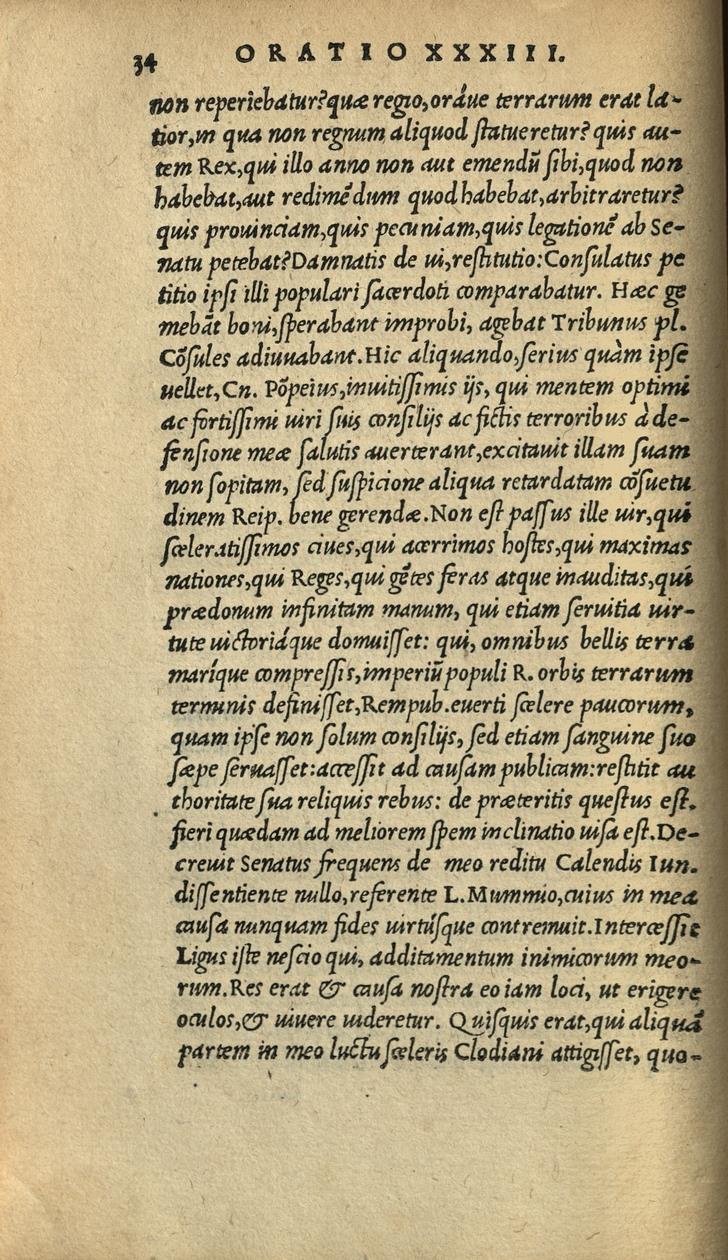 34 ORATIO XXXIII.
non reperiebatur? quæ regio, oráue terrarum erat la-
tior, in qua non regnum aliquod ſtatueretur? quis au-
tem Rex, qui illo anno non aut emendū ſibi, quod non
habebat, aut redimēdum quod habebat, arbitraretur?
quis prouinciam, quis pecuniam, quis legationē ab Se-
natu petebat? Damnatis de ui, reſtitutio: Conſulatus pe
titio ipſi illi populari ſacerdoti comparabatur. Hæc ge
mebāt boni, ſperabant improbi, agebat Tribunus pl.
Cōſules adiuuabant. Hic aliquando, ſerius quàm ipſe
uellet, Cn. Pōpeius, inuitiſſimis ijs, qui mentem optimi
ac fortiſſimi uiri ſuis conſilijs ac fictis terroribus à de-
fenſione meæ ſalutis auerterant, excitauit illam ſuam
non ſopitam, ſed ſuſpicione aliqua retardatam cōſuetu
dinem Reip. bene gerendæ. Non eſt paſſus ille uir, qui
ſceleratiſſimos ciues, qui acerrimos hoſtes, qui maximas
nationes, qui Reges, qui gētes feras atque inauditas, qui
prædonum infinitam manum, qui etiam ſeruitia uir-
tute uictoriáque domuiſſet: qui, omnibus bellis terra
maríque compreſſis, imperiū populi R. orbis terrarum
terminis definiſſet, Rempub. euerti ſcelere paucorum,
quam ipſe non ſolum conſilijs, ſed etiam ſanguine ſuo
ſæpe ſeruaſſet: acceſſit ad cauſam publicam: reſtitit au
thoritate ſua reliquis rebus: de præteritis queſtus eſt.
fieri quædam ad meliorem ſpem inclinatio uiſa eſt. De-
creuit Senatus frequens de meo reditu Calendis Iun.
diſſentiente nullo, referente L. Mummio, cuius in mea
cauſa nunquam fides uirtúſque contremuit. Interceſſit
Ligus iſte neſcio qui, additamentum inimicorum meo-
rum. Res erat & cauſa noſtra eo iam loci, ut erigere
oculos, & uiuere uideretur. Quiſquis erat, qui aliquā
partem in meo luctu ſceleris Clodiani attigiſſet, quo-